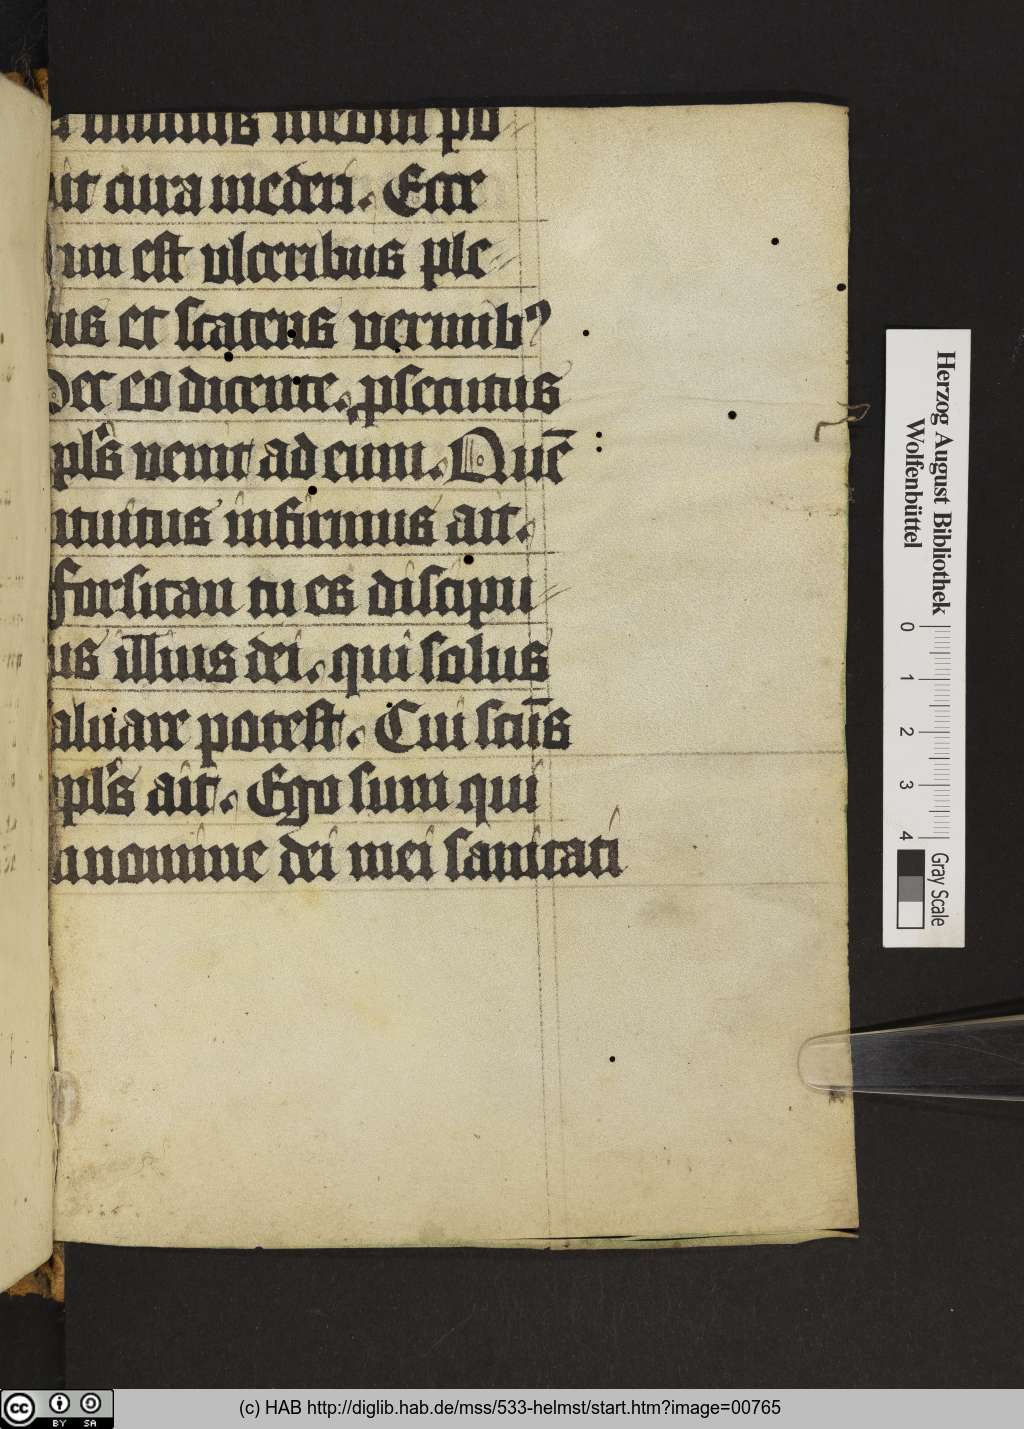 minus medici po
it cura mederi. Ecce
um est vlceribus ple
us et scatens vermibꝰ
Hec eo dicente. ꝓsecutus
apl̃s venit ad eum. Quē
intuitus infirmus ait.
forsitan tu es discipu
us illius dei. qui solus
saluare potest. Cui scūs
apl̃s ait. Ego sum qui
in nomine dei mei sanitati
Herzog August Bibliothek
Wolfenbüttel
0 1 2 3 4
Gray Scale
cc BY SA
(c) HAB http://diglib.hab.de/mss/533-helmst/start.htm?image=00765